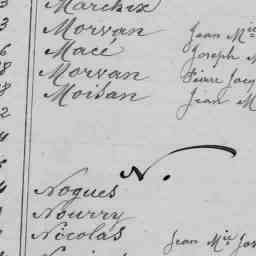 3 Marchix
3 Morvan Jean Mie
6 Macé Joseph M
8 Morvan Pierre Jacq
8 Moisan Jean M
2
4
N.
4 Nogues
4 Nourry
2 Nicolas Jean Mie Jos